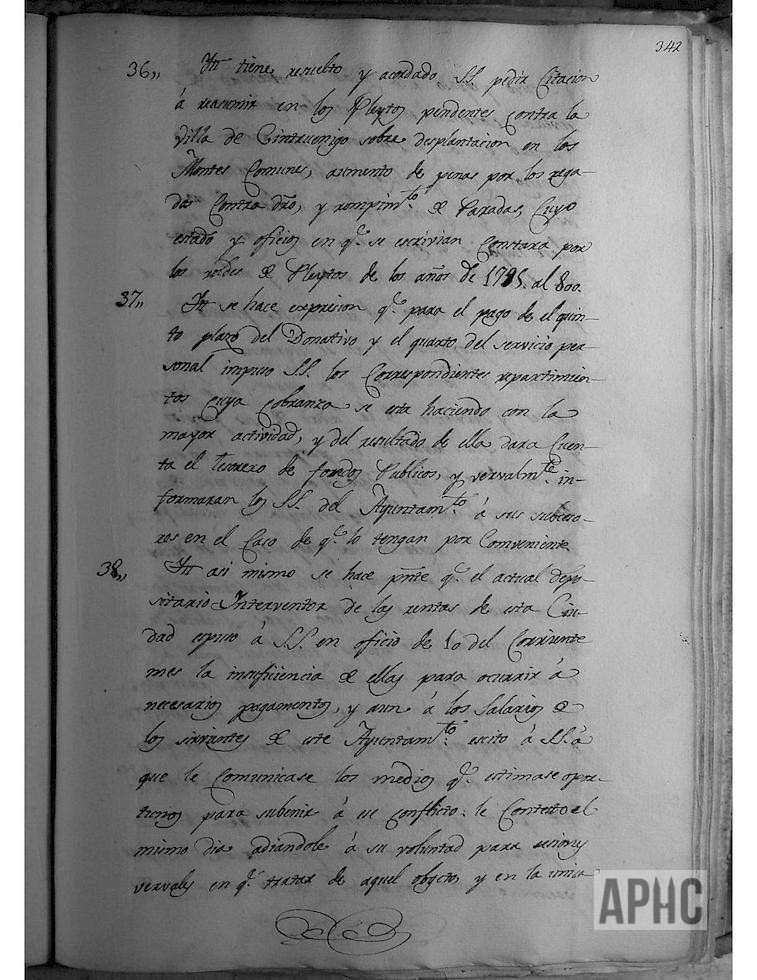 342
36,, Itt tiene resuelto y acordado S.S. pedir Citacion
á reasumir en los Pleytos pendentes contra la
Villa de Cintruenigo sobre desplantacion en los
Montes Comunes, aumento de penas por los rega-
das Contra dro, y rompimto. de Paradas, Cuyo
estado y oficios en q.e se escrivian Constara por
los roldes de Pleytos de los años de 1795. al 800.
37,, Itt se hace expresion q.e para el pago de el quin-
to plazo del Donativo y el quarto del servicio per-
sonal impuso S.S. los Correspondientes repartimien-
tos cuya Cobranza se esta haciendo con la
mayor actividad, y del resultado de ella dara Cuen-
ta el Tesorero de fondos Publicos, y vervalmte. in-
formaran los S.S. del Ayuntamto. á sus subceso-
res en el Caso de q.e lo tengan por Conveniente
38,, Itt asi mimo se hace pnte q.e el actual depo-
sitario Interventor de las rentas de esta Ciu-
dad espuso á S.S. en oficio de 10 del Corriente
mes la insuficiencia de ellas para ocurrir á
necesarios pagamentos, y aun á los Salarios de
los sirvientes de este Ayuntamto. escito á S.S. á
que le Comunicase los medios q.e estimase opor-
tunos para subenir á ese conflicto: le Contestó el
mismo dia adiandole á su voluntad para sesiones
vervales en q.e tratar de aquel objecto, y en la unica
APHC